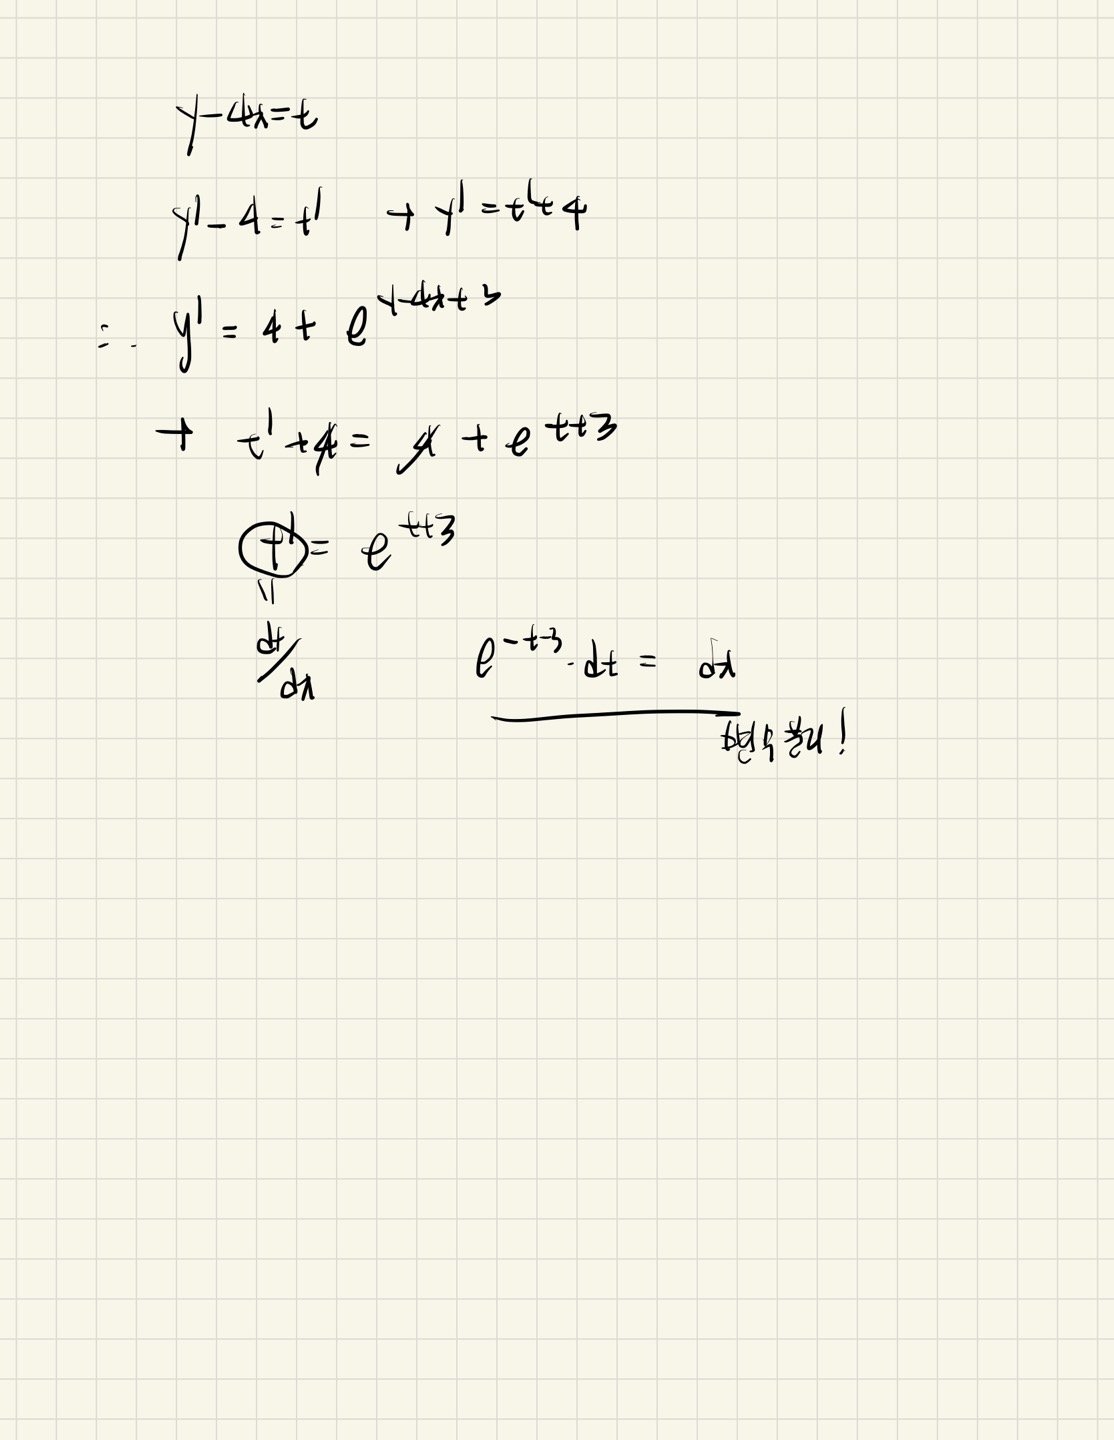 y-4x=t
y'-4=t' → y'=t'+4
∴ y' = 4+ e^{y-4x+3}
→ t'+4= 4 + e^{t+3}
t' = e^{t+3}
=
dt/dx
e^{-t-3}·dt = dx
변수분리!